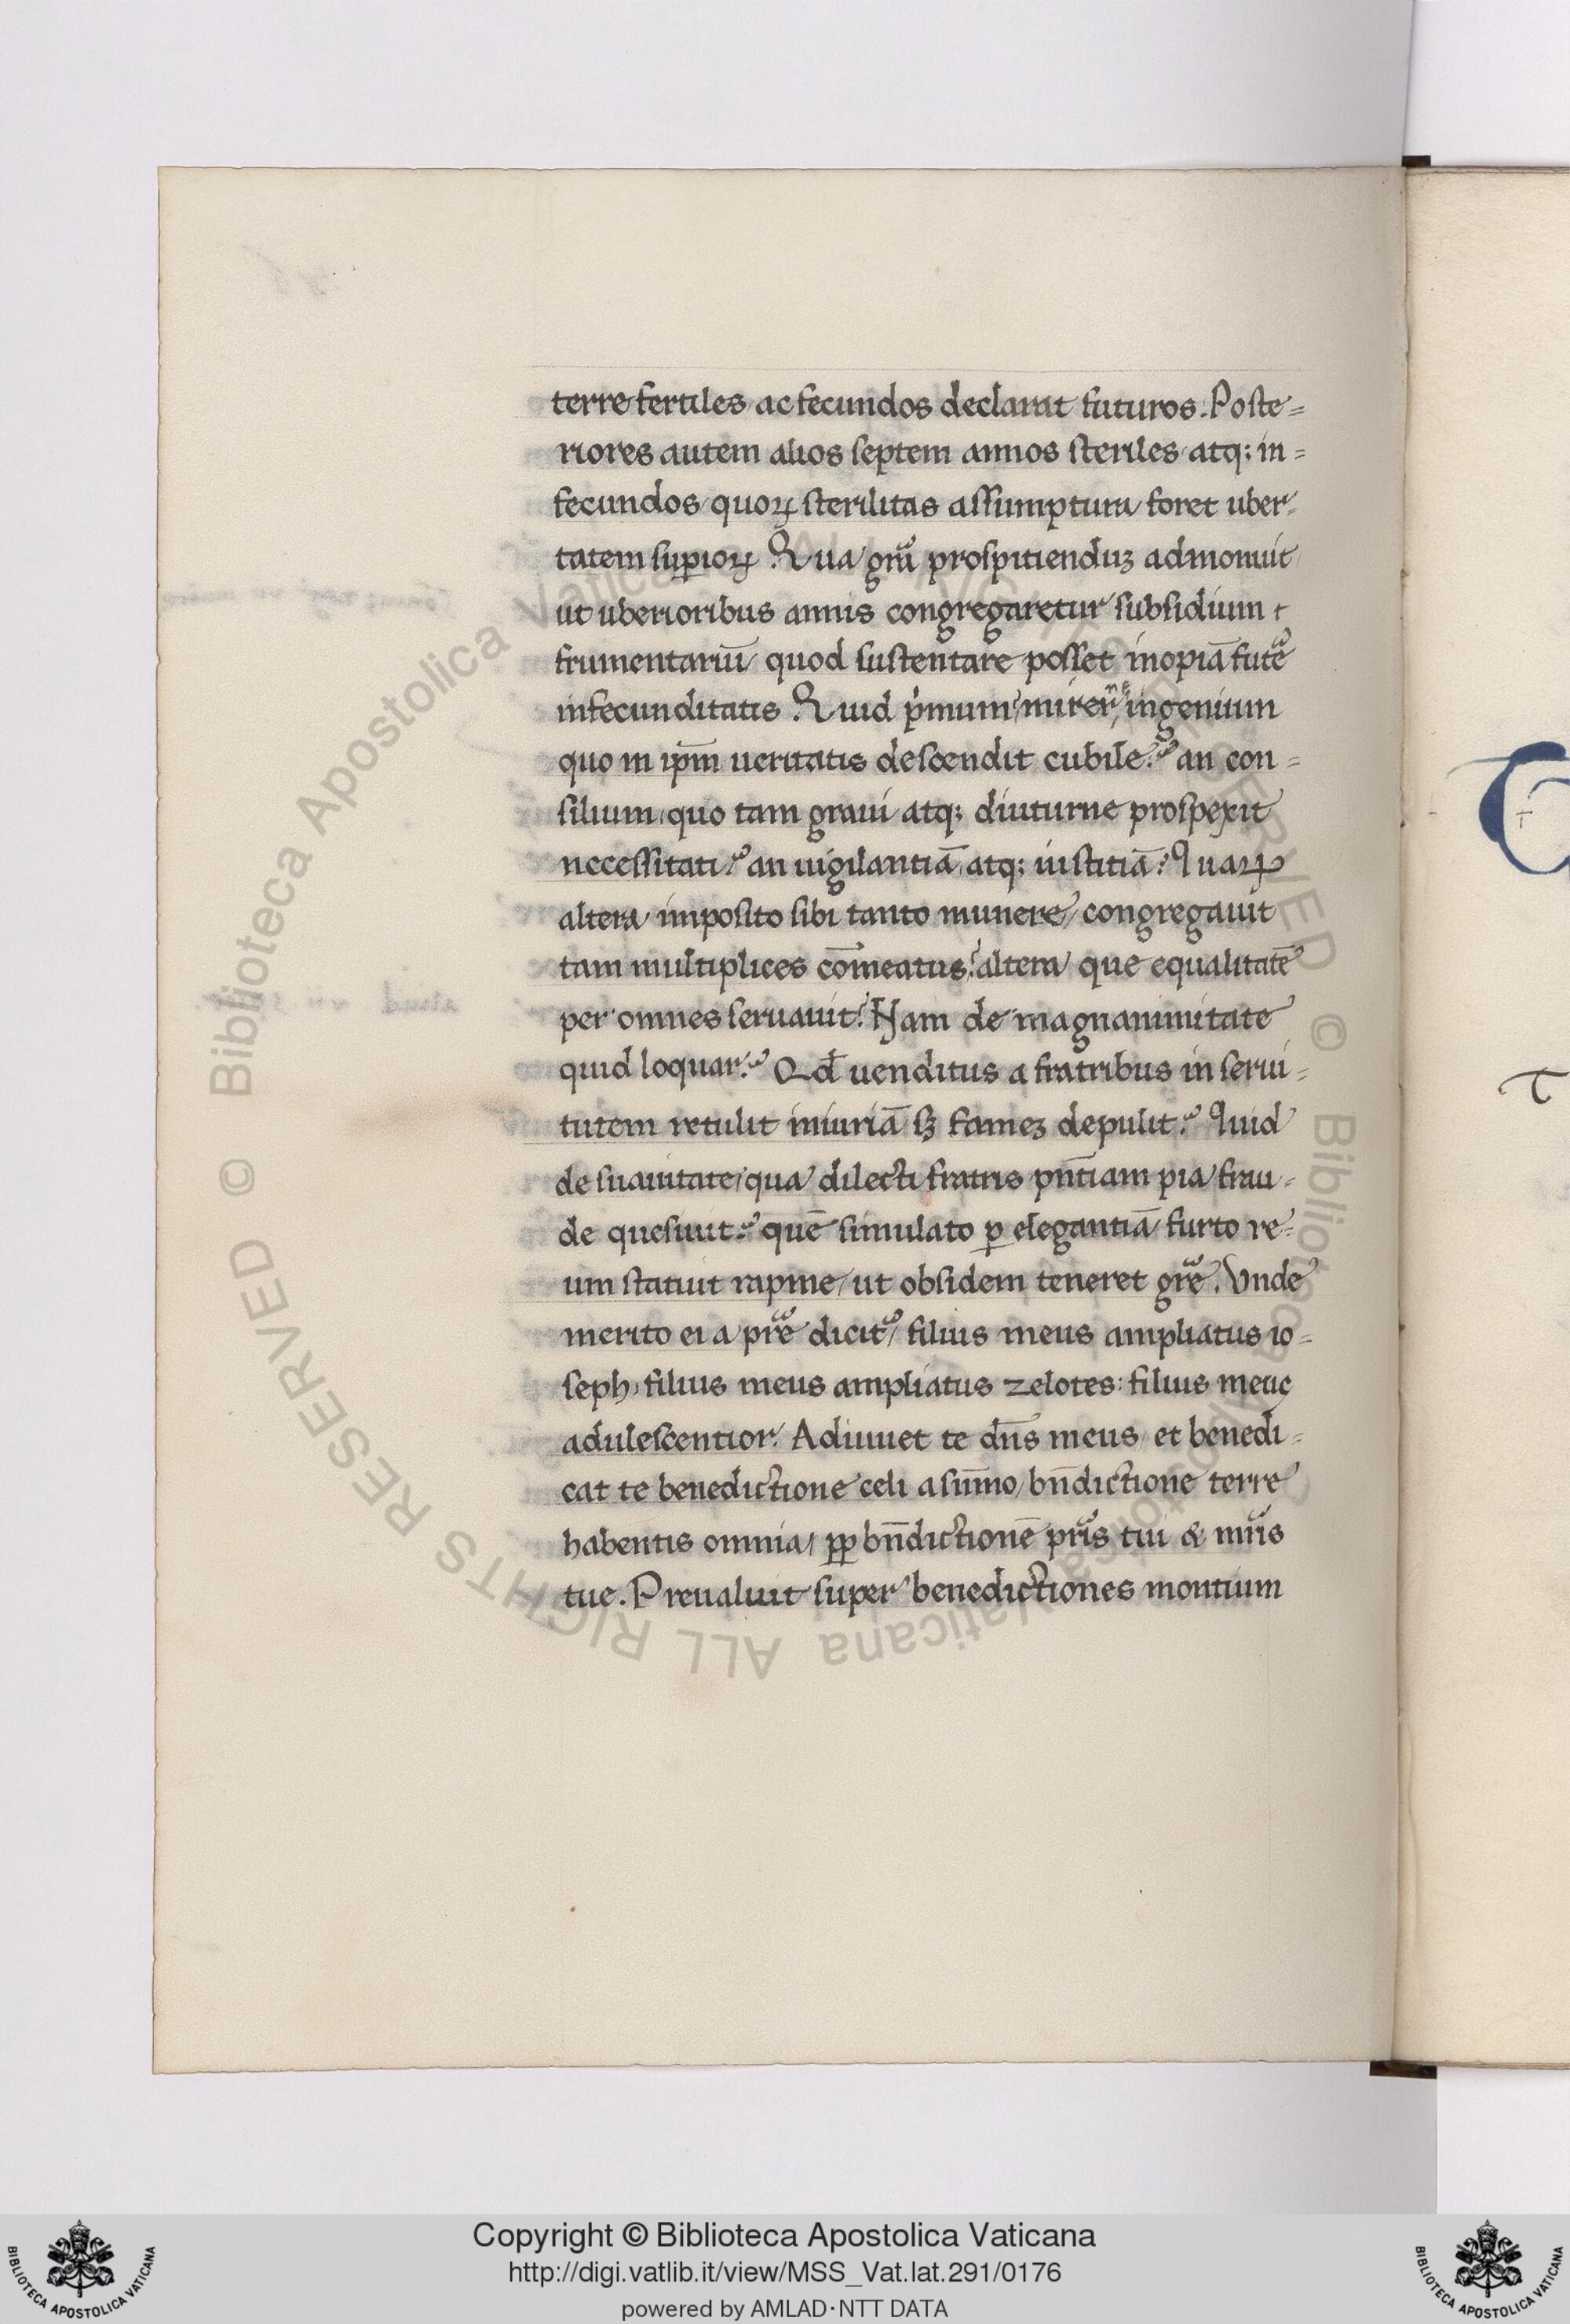 terre fertiles ac fecundos declarat futuros. Poste=
riores autem alios septem annos steriles atq; in=
fecundos quoꝝ sterilitas assumptura foret uber-
tatem supioꝝ. Qua gr̄a prospitienduꝫ admonuit
ut uberioribus annis congregaretur subsidium
frumentariū quod sustentare posset inopiā futē
infecunditatis. Quid pͥmum mirer, ingenium
quo in ip̄m ueritatis descendit cubile? an con=
silium, quo tam graui atq; diuturne prospexit
necessitati? an uigilantiā, atq; iustitiā? Quaꝝ
altera imposito sibi tanto munere, congregauit
tam multiplices cōmeatus: altera que equalitatē
per omnes seruauit. Nam de magnanimitate
quid loquar? Qd̄ uenditus a fratribus in serui=
tutem retulit iniuriā sꝫ fameꝫ depulit? Quid
de suauitate, qua dilecti fratris pn̄tiam pia frau=
de quesiuit? quē simulato ꝑ elegantiā furto re=
um statuit rapine, ut obsidem teneret gr̄e. Vnde
merito ei a pr̄e dicit᷑, filius meus ampliatus io=
seph, filius meus ampliatus zelotes: filius meus
adulescentior. Adiuuet te dn̄s meus et benedi=
cat te benedictione celi a sūmo, bn̄dictione terre
habentis omnia, ꝓp bn̄dictionē pr̄is tui & mr̄is
tue. Preualuit super benedictiones montium
Copyright © Biblioteca Apostolica Vaticana
http://digi.vatlib.it/view/MSS_Vat.lat.291/0176
powered by AMLAD·NTT DATA
BIBLIOTECA APOSTOLICA VATICANA
BIBLIOTECA APOSTOLICA VATICANA
© Biblioteca Apostolica Vaticana ALL RIGHTS RESERVED © Biblioteca Apostolica Vaticana ALL RIGHTS RESERVED